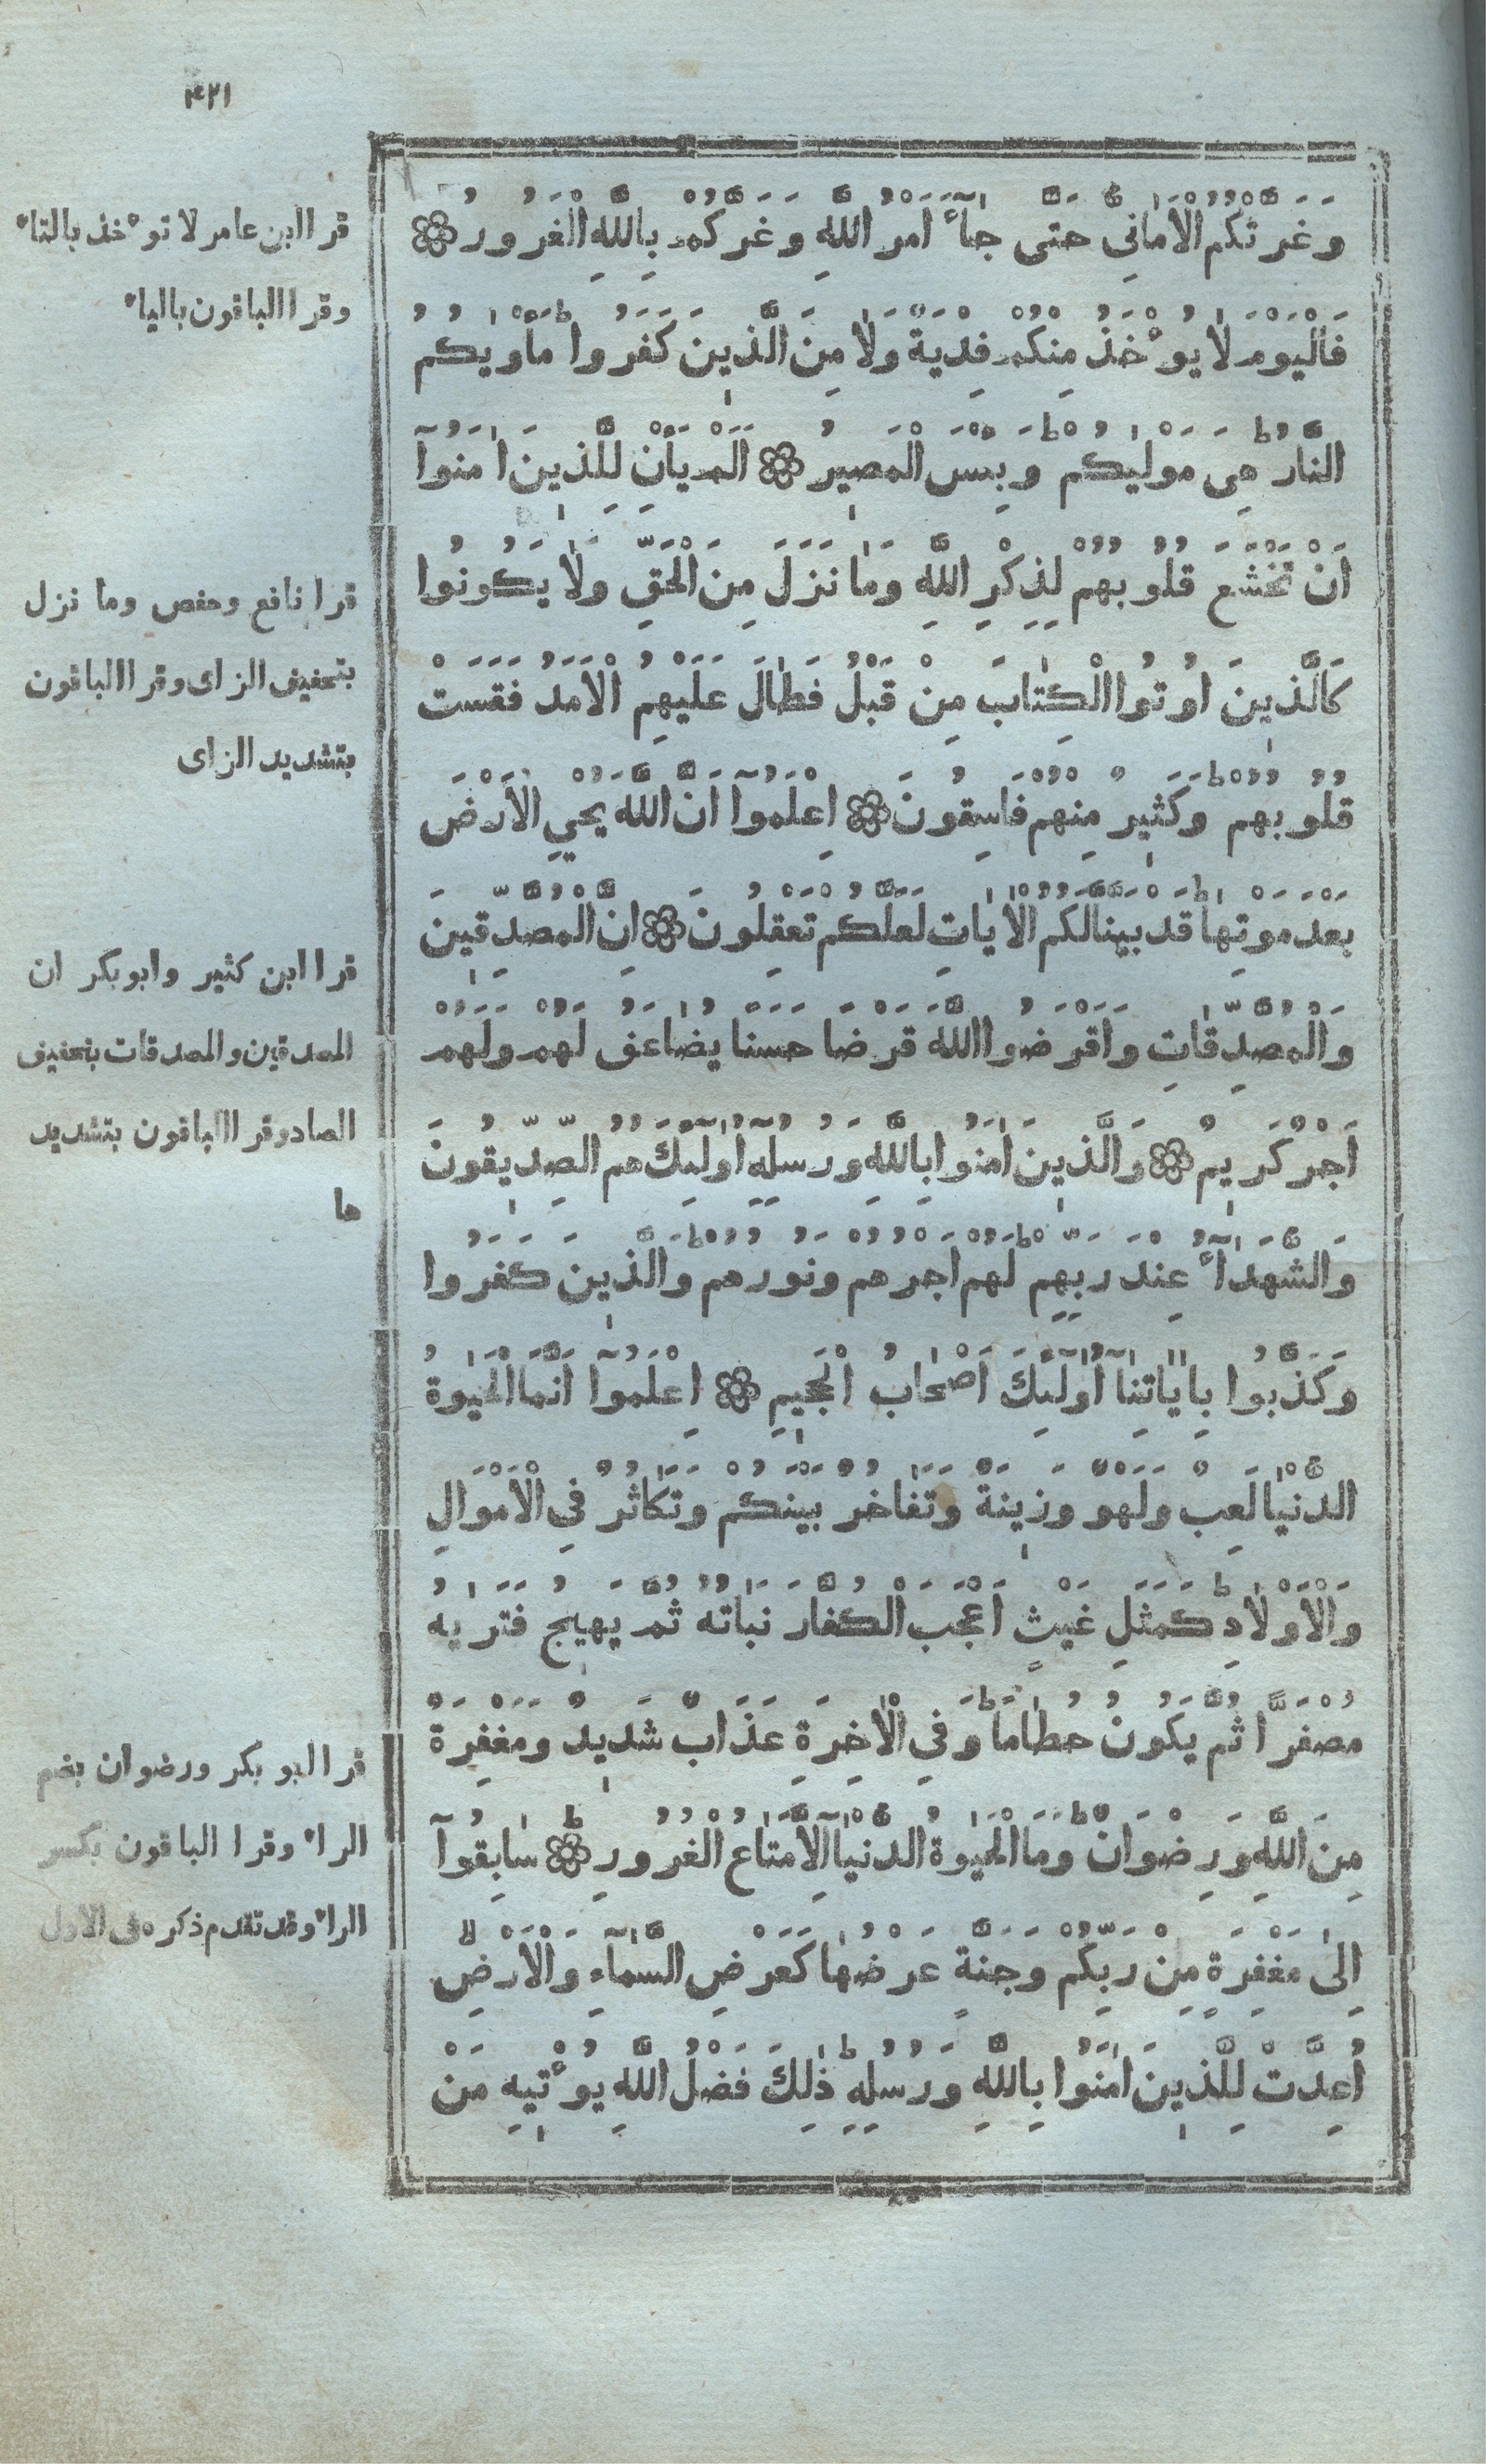 ٤٢١
وَغَرَّتْكُمُ الْأَمَانِىُّ حَتّٰى جَآءَ أَمْرُ اللّٰهِ وَغَرَّكُمْ بِاللّٰهِ الْغَرُورُ
فَالْيَوْمَ لَا يُؤْخَذُ مِنْكُمْ فِدْيَةٌ وَلَا مِنَ الَّذِينَ كَفَرُوا ط مَأْوٰيكُمُ
النَّارُ ط هِىَ مَوْلٰيكُمْ ط وَبِئْسَ الْمَصِيرُ اَلَمْ يَأْنِ لِلَّذِينَ اٰمَنُوٓا
اَنْ تَخْشَعَ قُلُوبُهُمْ لِذِكْرِ اللّٰهِ وَمَا نَزَلَ مِنَ الْحَقِّ وَلَا يَكُونُوا
كَالَّذِينَ اُوتُوا الْكِتَابَ مِنْ قَبْلُ فَطَالَ عَلَيْهِمُ الْاَمَدُ فَقَسَتْ
قُلُوبُهُمْ ط وَكَثِيرٌ مِنْهُمْ فَاسِقُونَ اِعْلَمُوٓا اَنَّ اللّٰهَ يُحْيِ الْاَرْضَ
بَعْدَ مَوْتِهَا ط قَدْ بَيَّنَّا لَكُمُ الْاٰيَاتِ لَعَلَّكُمْ تَعْقِلُونَ اِنَّ الْمُصَّدِّقِينَ
وَالْمُصَّدِّقَاتِ وَاَقْرَضُوا اللّٰهَ قَرْضًا حَسَنًا يُضَاعَفُ لَهُمْ وَلَهُمْ
اَجْرٌ كَرِيمٌ وَالَّذِينَ اٰمَنُوا بِاللّٰهِ وَرُسُلِهِٓ اُولٰٓئِكَ هُمُ الصِّدِّيقُونَ
وَالشُّهَدَآءُ عِنْدَ رَبِّهِمْ ط لَهُمْ اَجْرُهُمْ وَنُورُهُمْ ط وَالَّذِينَ كَفَرُوا
وَكَذَّبُوا بِاٰيَاتِنَآ اُولٰٓئِكَ اَصْحَابُ الْجَحِيمِ اِعْلَمُوٓا اَنَّمَا الْحَيٰوةُ
الدُّنْيَا لَعِبٌ وَلَهْوٌ وَزِينَةٌ وَتَفَاخُرٌ بَيْنَكُمْ وَتَكَاثُرٌ فِى الْاَمْوَالِ
وَالْاَوْلَادِ ط كَمَثَلِ غَيْثٍ اَعْجَبَ الْكُفَّارَ نَبَاتُهُ ثُمَّ يَهِيجُ فَتَرٰيهُ
مُصْفَرًّا ثُمَّ يَكُونُ حُطَامًا ط وَفِى الْاٰخِرَةِ عَذَابٌ شَدِيدٌ وَمَغْفِرَةٌ
مِنَ اللّٰهِ وَرِضْوَانٌ ط وَمَا الْحَيٰوةُ الدُّنْيَآ اِلَّا مَتَاعُ الْغُرُورِ سَابِقُوٓا
اِلٰى مَغْفِرَةٍ مِنْ رَبِّكُمْ وَجَنَّةٍ عَرْضُهَا كَعَرْضِ السَّمَآءِ وَالْاَرْضِ
اُعِدَّتْ لِلَّذِينَ اٰمَنُوا بِاللّٰهِ وَرُسُلِهِ ط ذٰلِكَ فَضْلُ اللّٰهِ يُؤْتِيهِ مَنْ
قرا ابن عامر لا تؤخذ بالتاء
وقرا الباقون بالياء
قرا نافع وحفص وما نزل
بتخفيف الزاى وقرا الباقون
بتشديد الزاى
قرا ابن كثير وابو بكر ان
المصدقين والمصدقات بتخفيف
الصاد وقرا الباقون بتشديد
ها
قرا ابو بكر ورضوان بضم
الراء وقرا الباقون بكسر
الراء وقد تقدم ذكره فى الاول